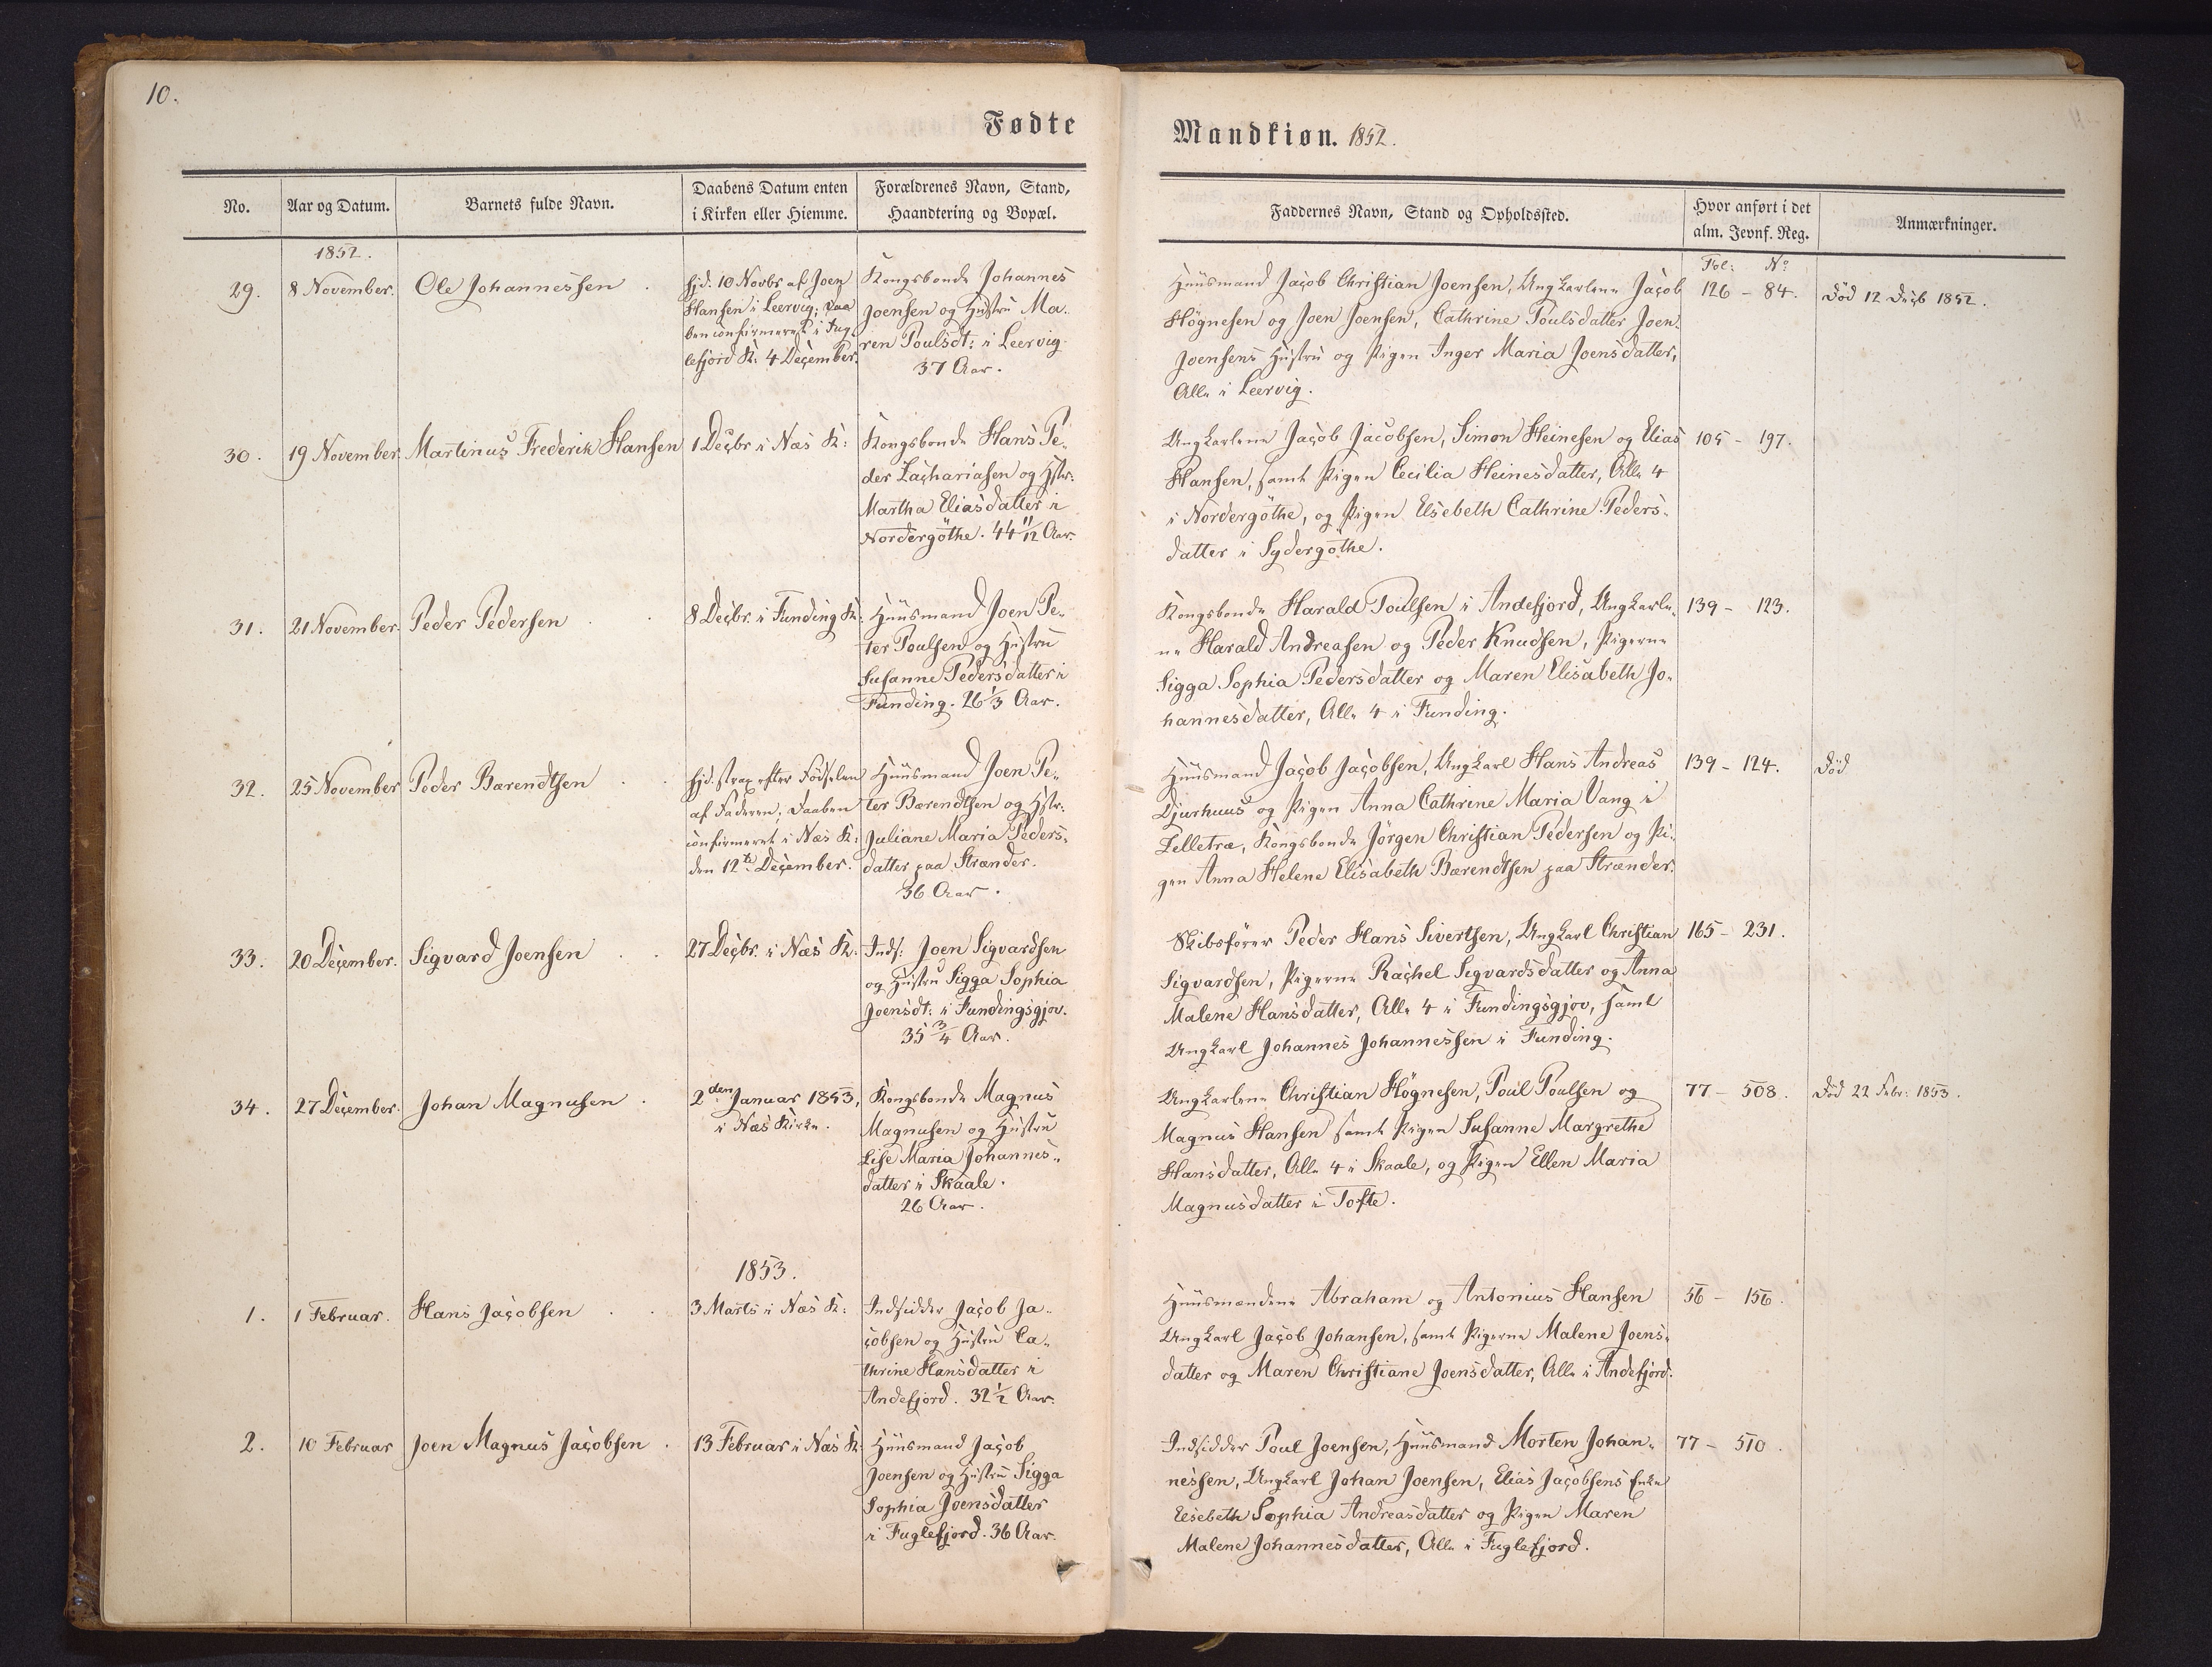 10.
Fødte
No.
Aar og Datum.
Barnets fulde Navn.
Daabens Datum enten
i Kirken eller Hiemme.
Forældrenes Navn, Stand,
Haandtering og Bopæl.
1852.
29.
8 November.
Ole Johannessen
hjd. 10 Novbr af Joen
Hansen i Leervig; Daa
ben confirmeret i Fug
lefjord K. 4 December.
Kongsbonde Johannes
Joensen og Hustru Ma-
ren Poulsdt: i Leervig
37 Aar.
30.
19 November.
Martinus Frederik Hansen
1 Decbr i Næs K:
Kongsbonde Hans Pe-
der Zachariasen og Hstr:
Martha Eliasdatter i
Nordergöthe. 44 11/12 Aar.
31.
21 November.
Peder Pedersen
8 Decbr. i Funding K:
Huusmand Joen Pe-
ter Poulsen og Hustru
Susanne Pedersdatter i
Funding. 26 1/3 Aar.
32.
25 November
Peder Bærendtsen
hjd. strax efter Födselen
af Faderen; Daaben
confirmeret i Næs K:
den 12te December.
Huusmand Joen Pe-
ter Bærendtsen og Hstr:
Juliane Maria Peders-
datter paa Strænder.
36 Aar.
33.
20 December.
Sigvard Joensen
27 Decbr. i Næs K:
Inds: Joen Sigvardsen
og Hustru Sigga Sophia
Joensdt: i Fundingsgjov.
35 3/4 Aar.
34.
27 December.
Johan Magnusen
2den Januar 1853,
i Næs Kirke.
Kongsbonde Magnus
Magnusen og Hustru
Lise Maria Johannes-
datter i Skaale.
26 Aar.
1853.
1.
1 Februar.
Hans Jacobsen
3 Marts i Næs K:
Indsidder Jacob Ja-
cobsen og Hustru Ca-
thrine Hansdatter i
Andefjord. 32 1/2 Aar.
2.
10 Februar
Joen Magnus Jacobsen
13 Februar i Næs K.
Huusmand Jacob
Joensen og Hustru Sigga
Sophia Joensdatter
i Fuglefjord. 36 Aar.
Mandkiøn. 1852.
Faddernes Navn, Stand og Opholdssted.
Hvor anført i det
alm. Jevnf. Reg.
Anmærkninger.
Fol: No
Huusmand Jacob Christian Joensen, Ungkarlene Jacob
Högnesen og Joen Joensen, Cathrine Poulsdatter Joen
Joensens Hustru og Pigen Inger Maria Joensdatter,
Alle i Leervig.
126 - 84.
Död 12 Decb 1852.
Ungkarlene Jacob Jacobsen, Simon Heinesen og Elias
Hansen, samt Pigen Cecilia Heinesdatter, Alle 4
i Nordergöthe, og Pigen Elsebeth Cathrine Peders-
datter i Sydergöthe.
105 - 197.
Kongsbonde Harald Poulsen i Andefjord, Ungkarle-
ne Harald Andreasen og Peder Knudsen, Pigerne
Sigga Sophia Pedersdatter og Maren Elisabeth Jo-
hannesdatter, Alle 4 i Funding.
139 - 123.
Huusmand Jacob Jacobsen, Ungkarl Hans Andreas
Djurhuus og Pigen Anna Cathrine Maria Vang i
Selletræ, Kongsbonde Jörgen Christian Pedersen og Pi-
gen Anna Helene Elisabeth Bærendtsen paa Strænder.
139 - 124.
Död
Skibsförer Peder Hans Sivertsen, Ungkarl Christian
Sigvardsen, Pigerne Rachel Sigvardsdatter og Anna
Malene Hansdatter, Alle 4 i Fundingsgjov, samt
Ungkarl Johannes Johannessen i Funding.
165 - 231.
Ungkarlene Christian Högnesen, Poul Poulsen og
Magnus Hansen samt Pigen Susanne Margrethe
Hansdatter, Alle 4 i Skaale, og Pigen Ellen Maria
Magnusdatter i Tofte.
77 - 508.
Död 22 Febr: 1853.
Huusmændene Abraham og Antonius Hansen
Ungkarl Jacob Johansen, samt Pigerne Malene Joens-
datter og Maren Christiane Joensdatter, Alle i Andefjord.
56 - 156.
Indsidder Poul Joensen, Huusmand Morten Johan-
nessen, Ungkarl Johan Joensen, Elias Jacobsens Enke
Elsebeth Sophia Andreasdatter og Pigen Maren
Malene Johannesdatter, Alle i Fuglefjord.
77 - 510.